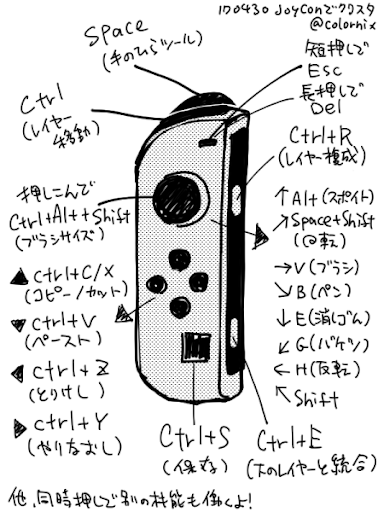 170430 JoyConでクリスタ
@colornix
Space
(手のひらツール)
短押しで
Esc
長押しで
Del
Ctrl
(レイヤー
移動)
Ctrl+R
(レイヤー複成)
押しこんで
Ctrl+Alt+Shift
(ブラシサイズ)
↑Alt(スポイト)
↗Space+Shift
(回転)
→V(ブラシ)
↘B(ペン)
↓E(消しゴム)
↙G(バケツ)
←H(反転)
↖Shift
▲Ctrl+C/X
(コピー/カット)
▼Ctrl+V
(ペースト)
◀Ctrl+Z
(とりけし)
▶Ctrl+Y
(やりなおし)
Ctrl+S
(保存)
Ctrl+E
(下のレイヤーと統合)
他、同時押しで別の機能も働くよ!